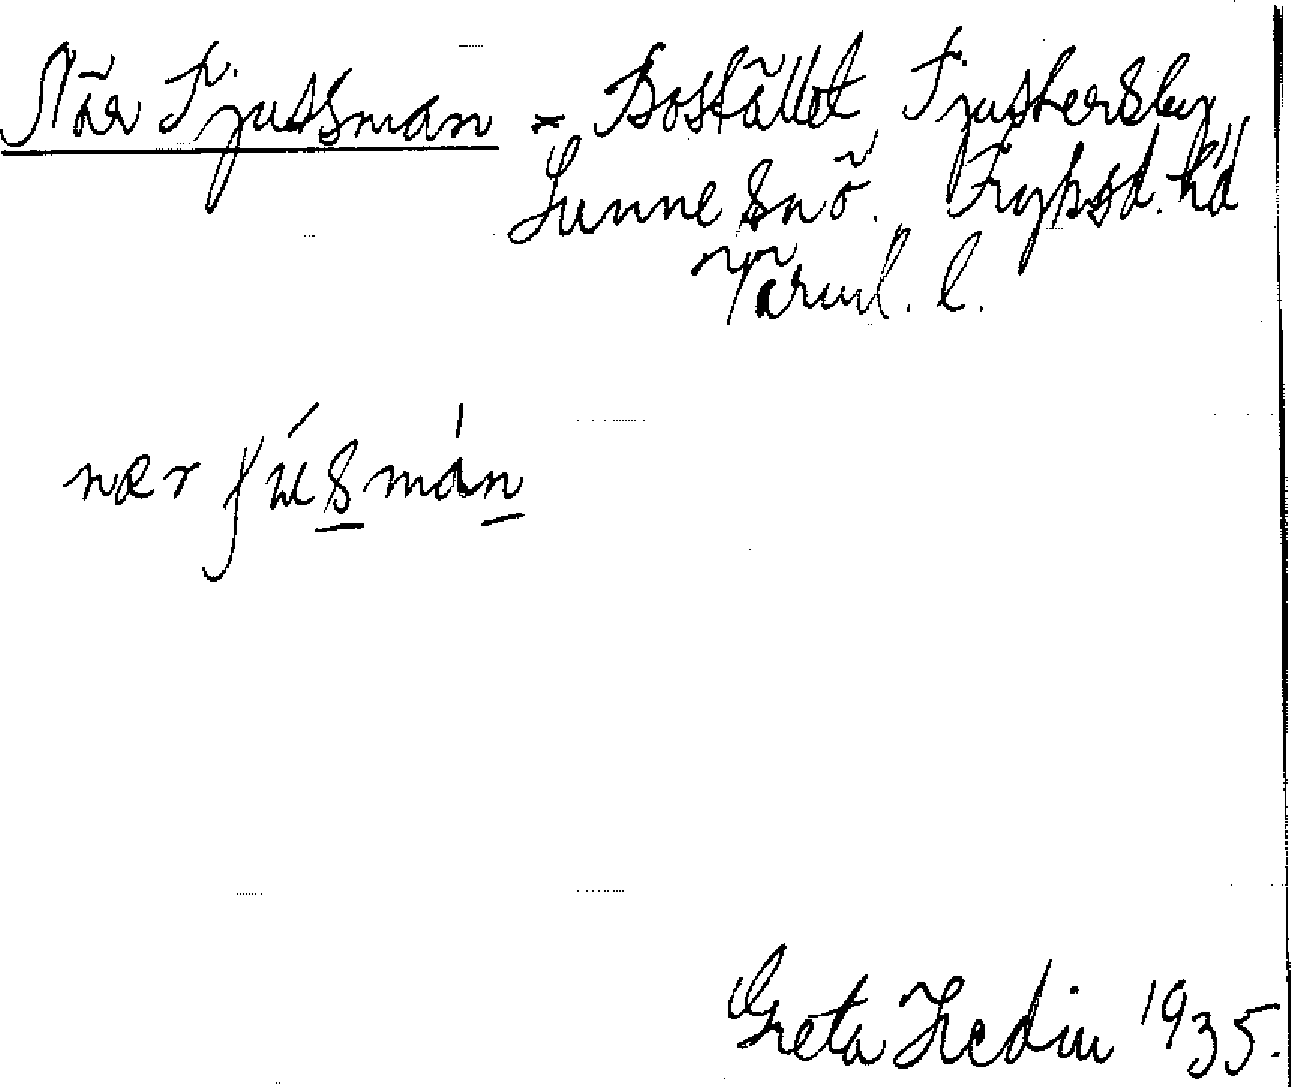 När Tjussman = Bostället, Tjustersby
Sunne sn o. Fryksd. hd
Värml. l.
nær ʃúsmán
Greta Hedin 1935.